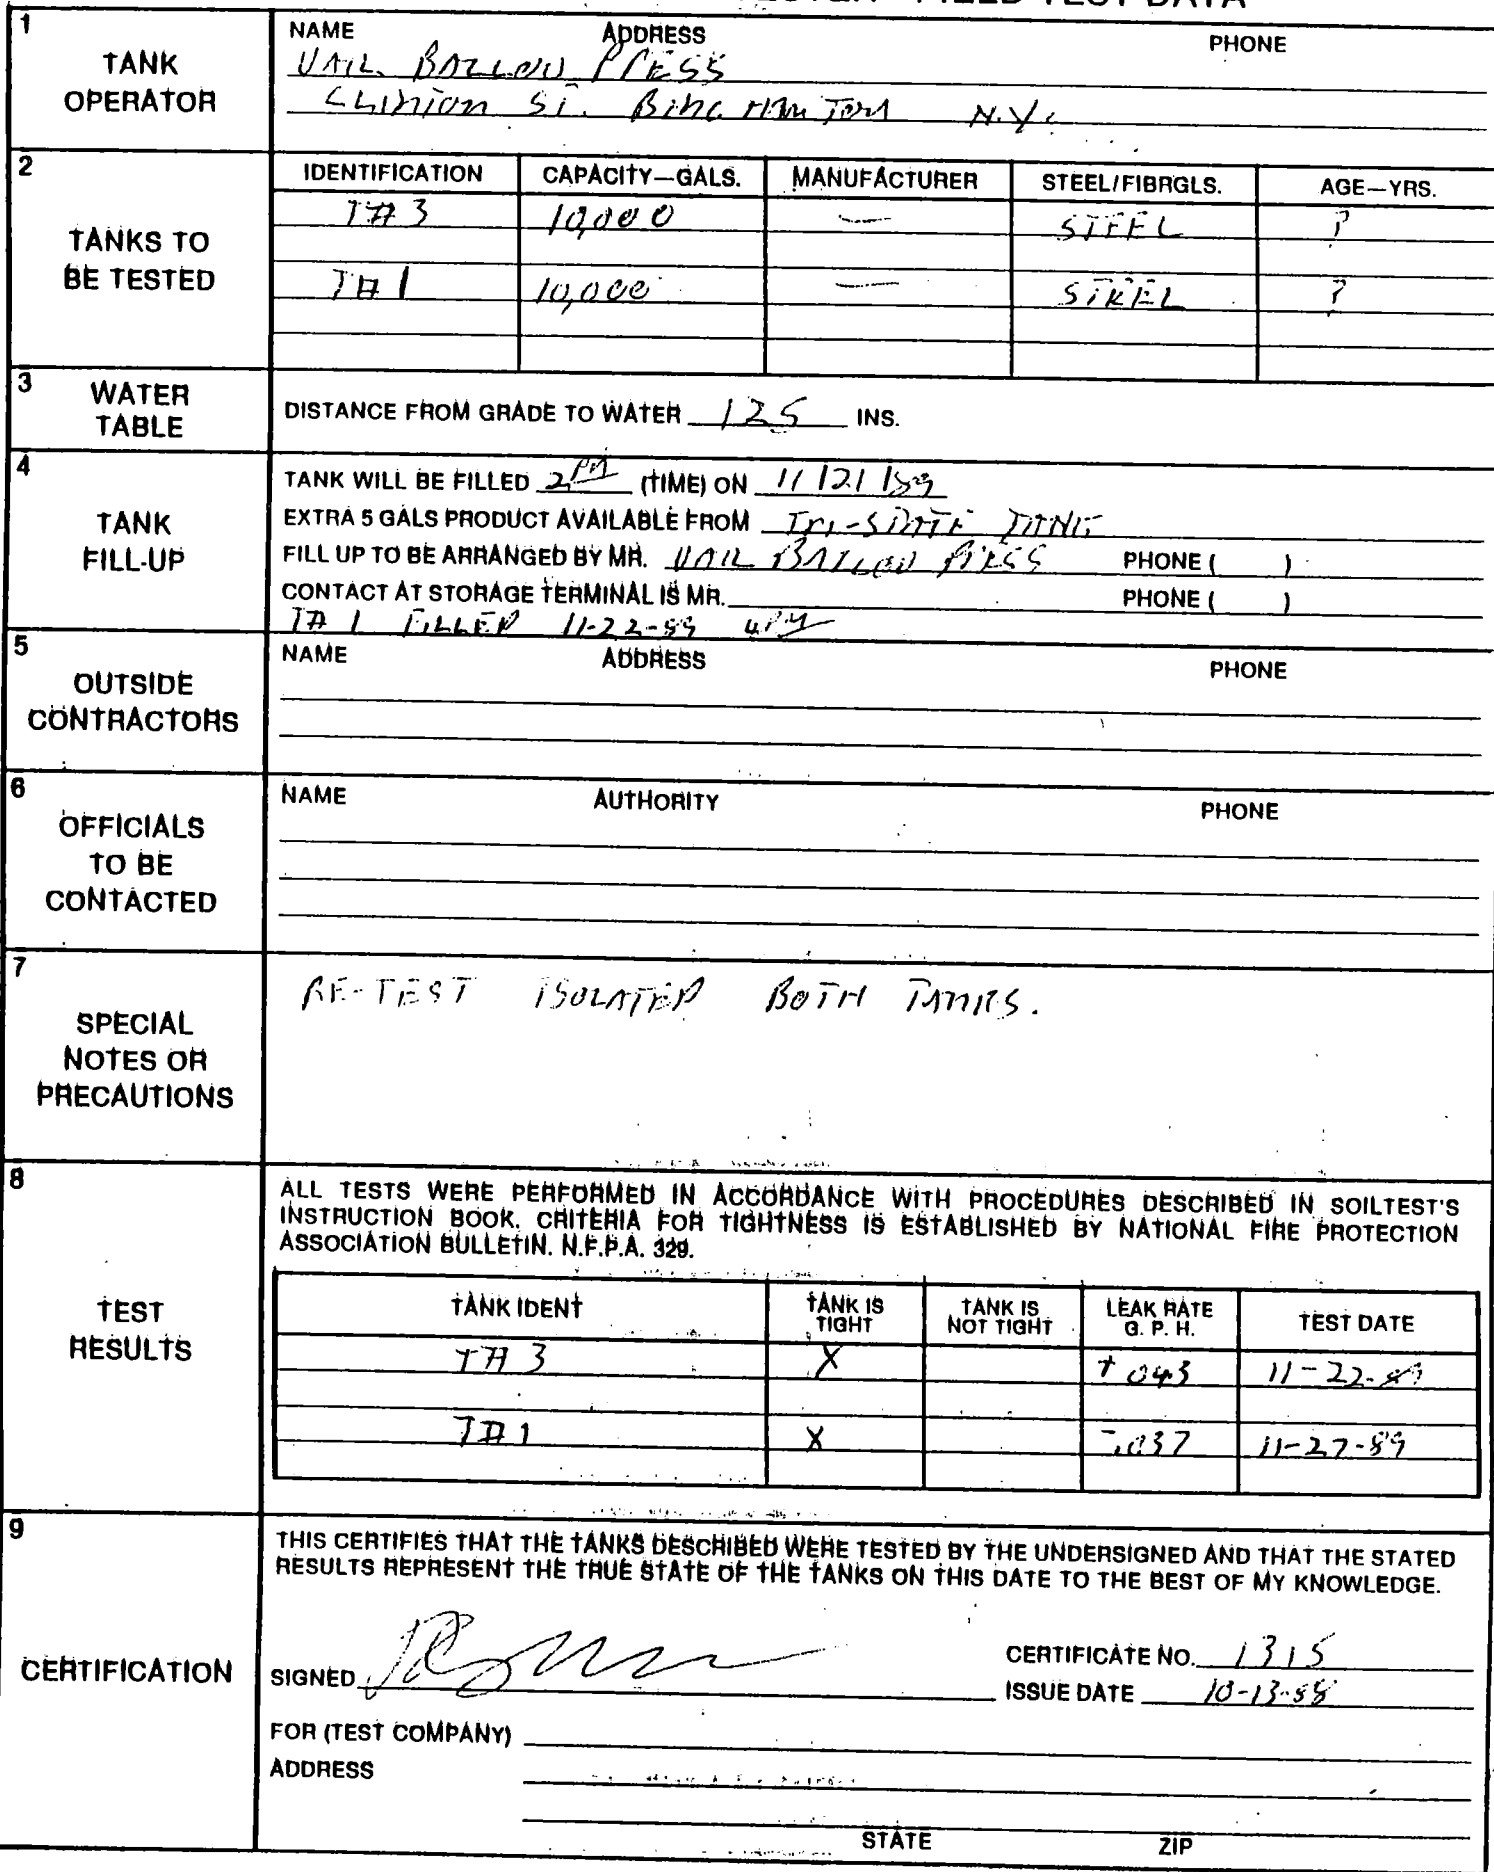 FIELD TEST DATA
1
TANK OPERATOR
NAME ADDRESS PHONE
VAIL BALLOU PRESS
CLINTON ST. BINGHAMTON N.Y.
2
TANKS TO BE TESTED
IDENTIFICATION CAPACITY—GALS. MANUFACTURER STEEL/FIBRGLS. AGE—YRS.
T#3 10,000 — STEEL ?
T#1 10,000 — STEEL ?
3
WATER TABLE
DISTANCE FROM GRADE TO WATER 125 INS.
4
TANK FILL-UP
TANK WILL BE FILLED 2 PM (TIME) ON 11/21/89
EXTRA 5 GALS PRODUCT AVAILABLE FROM TRI-STATE TANK
FILL UP TO BE ARRANGED BY MR. VAIL BALLOU PRESS PHONE ( )
CONTACT AT STORAGE TERMINAL IS MR. PHONE ( )
T# 1 FILLED 11-22-89 4 PM
5
OUTSIDE CONTRACTORS
NAME ADDRESS PHONE
6
OFFICIALS TO BE CONTACTED
NAME AUTHORITY PHONE
7
SPECIAL NOTES OR PRECAUTIONS
RE-TEST ISOLATED BOTH TANKS.
8
TEST RESULTS
ALL TESTS WERE PERFORMED IN ACCORDANCE WITH PROCEDURES DESCRIBED IN SOILTEST'S
INSTRUCTION BOOK. CRITERIA FOR TIGHTNESS IS ESTABLISHED BY NATIONAL FIRE PROTECTION
ASSOCIATION BULLETIN. N.F.P.A. 329.
TANK IDENT TANK IS TIGHT TANK IS NOT TIGHT LEAK RATE G. P. H. TEST DATE
T#3 X +.043 11-22-89
T#1 X -.037 11-27-89
9
CERTIFICATION
THIS CERTIFIES THAT THE TANKS DESCRIBED WERE TESTED BY THE UNDERSIGNED AND THAT THE STATED
RESULTS REPRESENT THE TRUE STATE OF THE TANKS ON THIS DATE TO THE BEST OF MY KNOWLEDGE.
SIGNED
CERTIFICATE NO. 1315
ISSUE DATE 10-13-88
FOR (TEST COMPANY)
ADDRESS
STATE ZIP